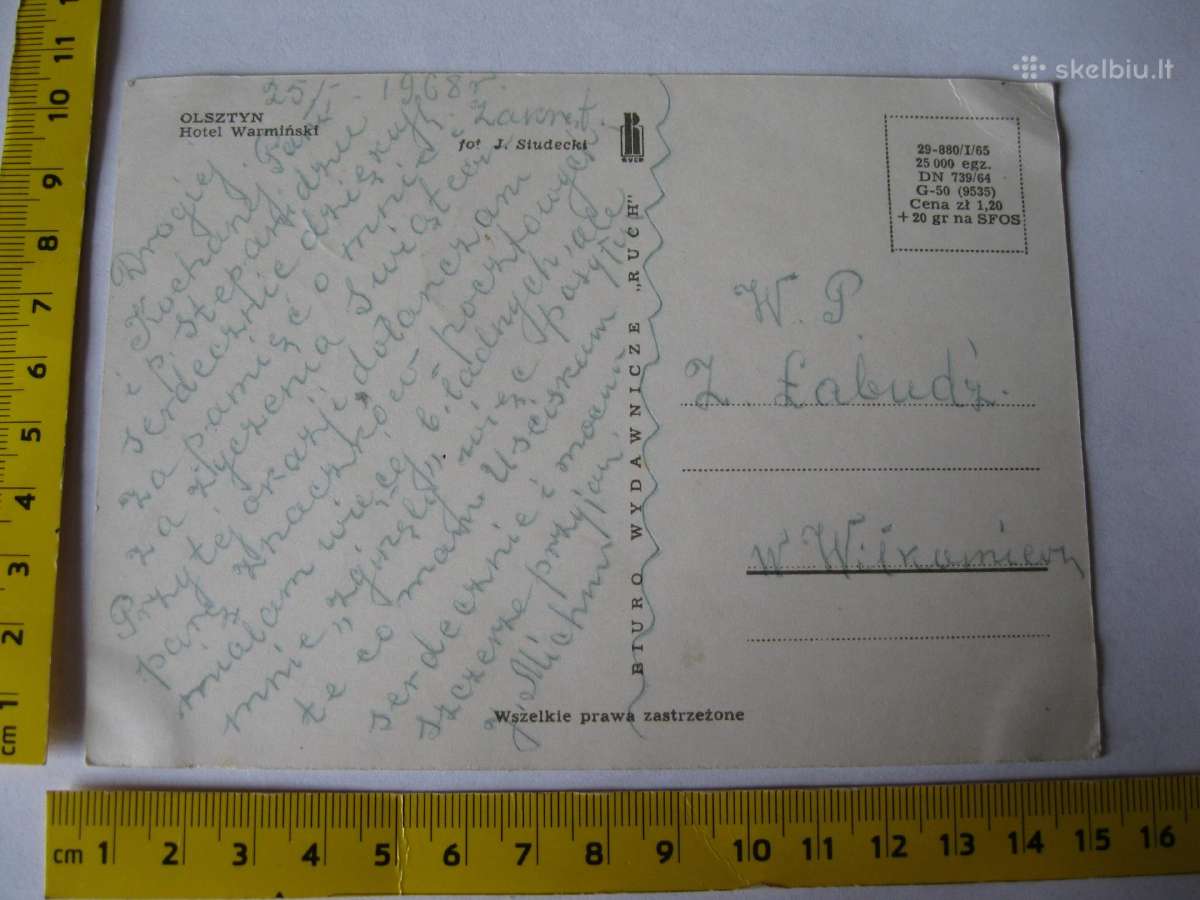 skelbiu.lt
OLSZTYN
Hotel Warmiński
fot J. Siudecki
RUCH
25 1968 r.
Drogiej
i Kochanej Pani
i p. Stepanidzie
serdecznie dziękuję
za pamięć o mnie i
za życzenia Świąteczn
Przy tej okazji dołanczam
parę znaczków pocztowych
miałam więcej b. ładnych, ale
mnie „zginęły” więc posyłam
te co mam. Uściskam
serdecznie i mocno
szczerze przyjaźń
J. Michn
BIURO WYDAWNICZE „RUCH”
Wszelkie prawa zastrzeżone
29-880/I/65
25 000 egz.
DN 739/64
G-50 (9535)
Cena zł 1,20
+ 20 gr na SFOS
W. P
Z. Łabudź.
w Wilkomierzu
cm 1 2 3 4 5 6 7 8 9 10 11
cm 1 2 3 4 5 6 7 8 9 10 11 12 13 14 15 16